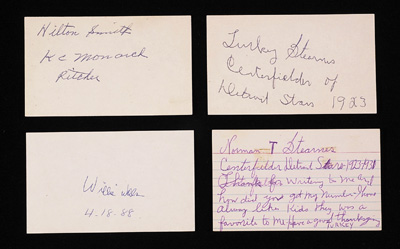 Hilton Smith
K C Monarch
Pitcher
Turkey Stearnes
Centerfielder of
Detroit Stars 1923
Willie Wells
4-18-88
Norman T Stearnes
Centerfielder Detroit Stars 1923-1931
Thanks for Writing to me and
how did you got my Number I have
always like Kids they was a
favorite to me have a good thanksgiving
TURKEY